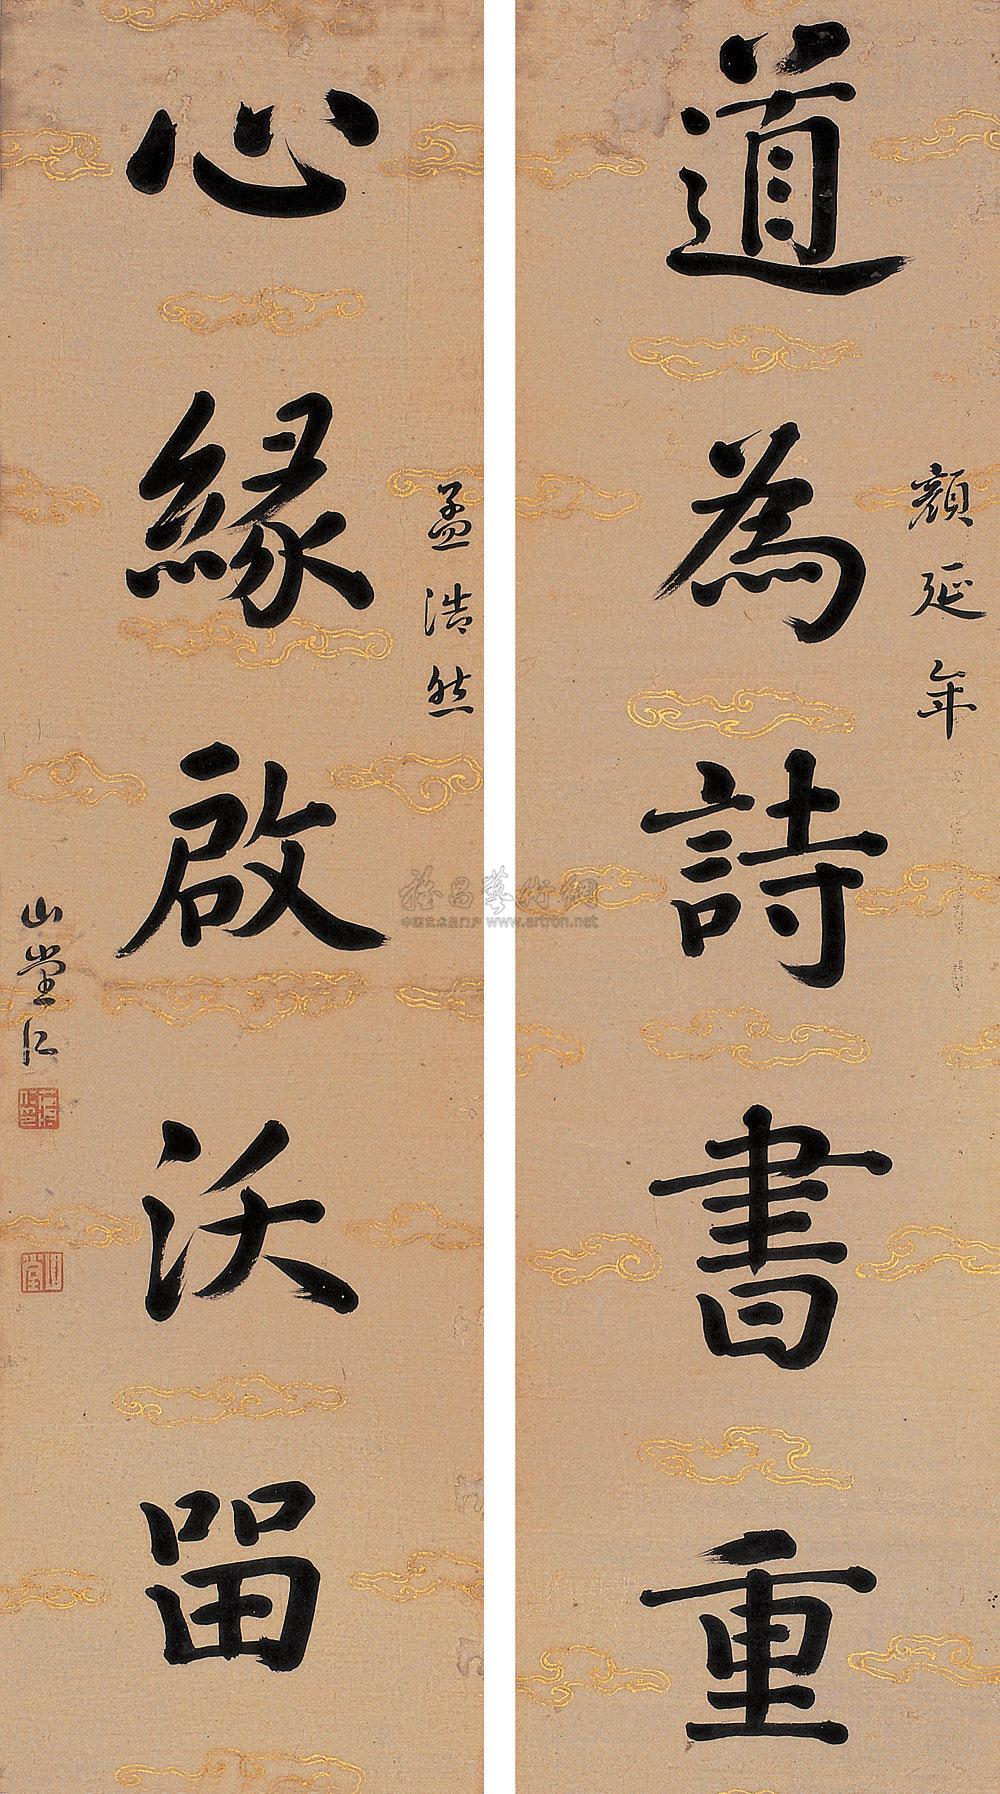 道為詩書重
顏延年
心緣啟沃留
孟浩然
山堂仁
中国艺术品门户 www.artron.net